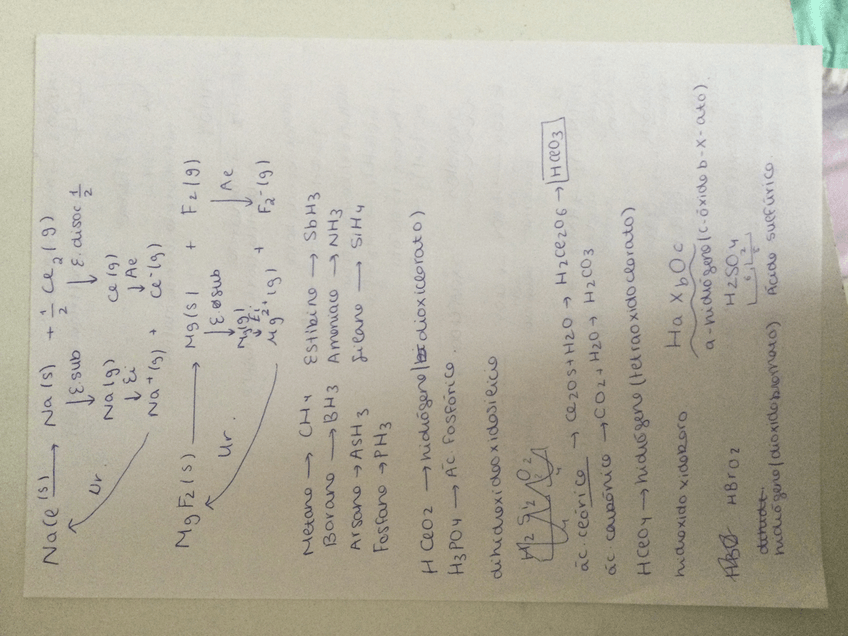 NaCl (s) → Na (s) + 1/2 Cl2 (g)
↓ E sub ↓ E. disoc 1/2
Na(g) Cl(g)
↓ Ei ↓ Ae
Ur. Na+(g) + Cl-(g)
MgF2 (s) → Mg(s) + F2 (g)
↓ E sub ↓ Ae
Ur. Mg(g)
↓ Ei
Mg2+ (g) + F2-(g)
Metano → CH4 Estibino → SbH3
Borano → BH3 Amoniaco → NH3
Arsano → AsH3 Silano → SiH4
Fosfano → PH3
HClO2 → hidrógeno(dioxiclorato)
H3PO4 → Ác. Fosfórico.
ác. clórico → Cl2O5+H2O → H2Cl2O6 → HClO3
ác carbónico → CO2 + H2O → H2CO3
HClO4 → hidrógeno (tetraoxidoclorato)
Ha Xb Oc
a-hidrógeno(c-óxido b-x-ato).
HBrO2 H2SO4
hidrógeno(dioxidobromato) Ácido sulfúrico.